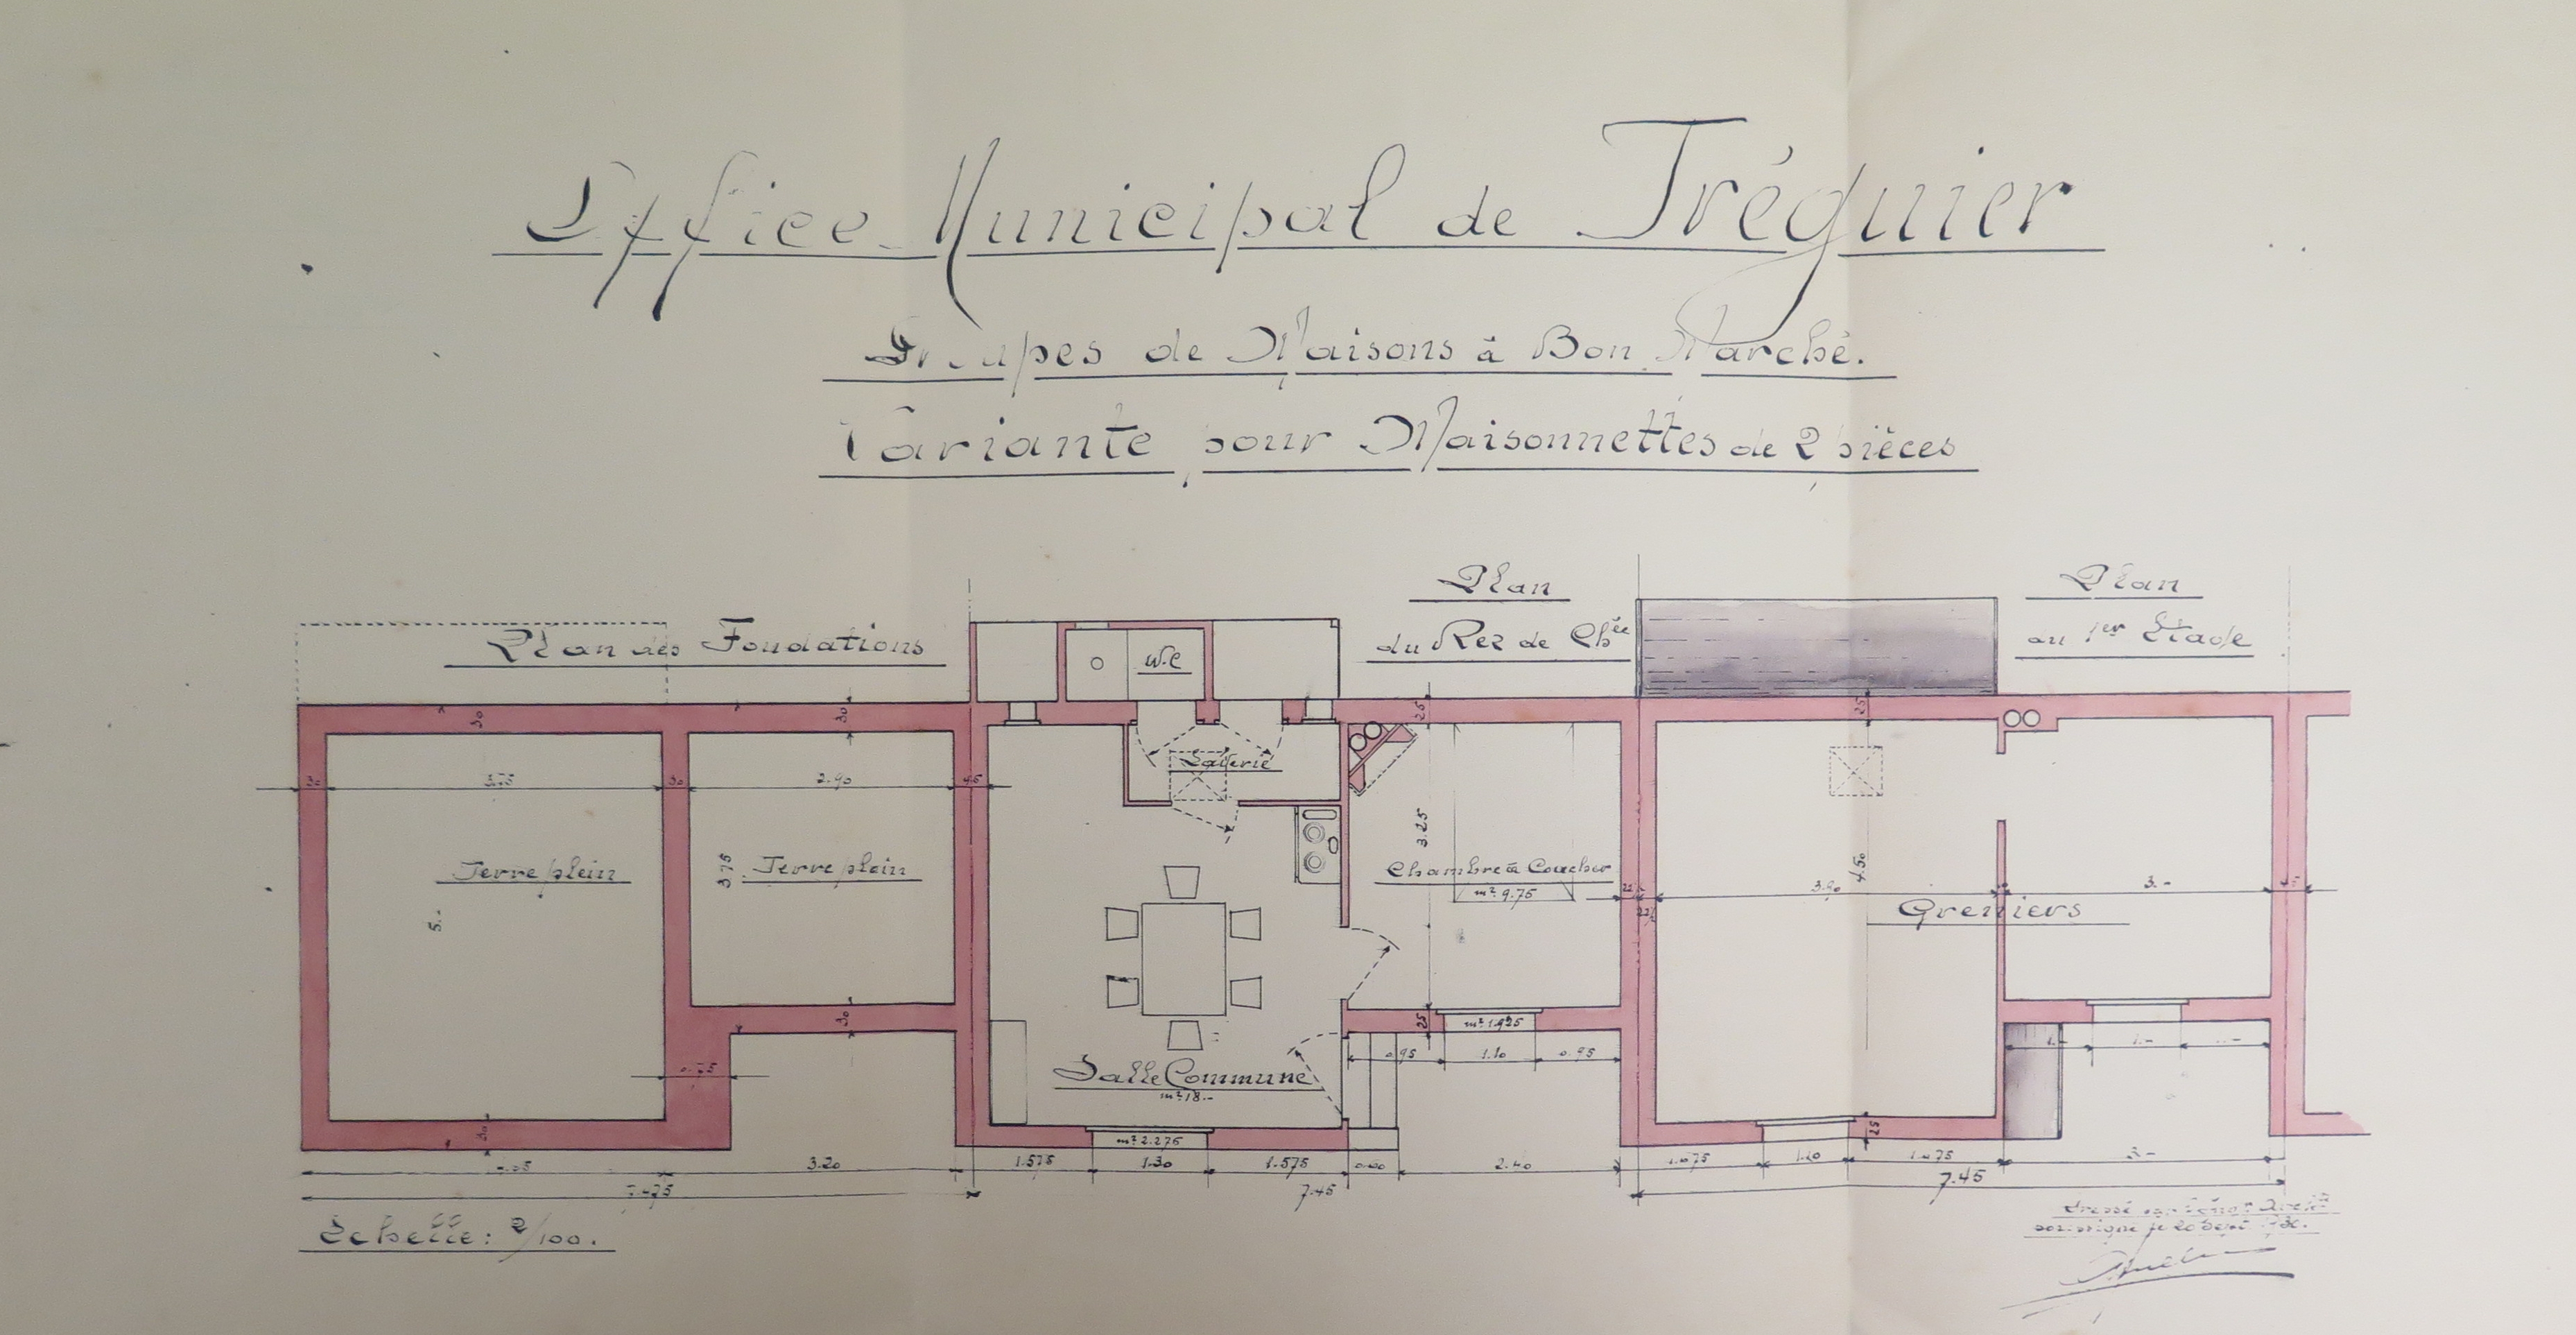 Office Municipal de Tréguier
Groupes de Maisons à Bon Marché.
Variante pour Maisonnettes de 2 pièces
Plan des Fondations
Plan
du Rez de Ch^ée
Plan
au 1^er Etage
W.C
30
30
25
25
30
3.75
30
2.90
45
Laverie
3.25
4.50
Terre plein
3.75
Terre plein
5.-
Chambre à Coucher
m² 9.75
22
22
3.90
3.-
Greniers
30
25
m² 1.925
0.95
1.10
0.95
1.-
1.-
1.-
0.75
Salle Commune
m² 18.-
30
m² 2.275
25
3.20
1.575
1.30
1.575
2.40
1.20
3.-
7.475
7.45
7.45
Echelle: 2/100.